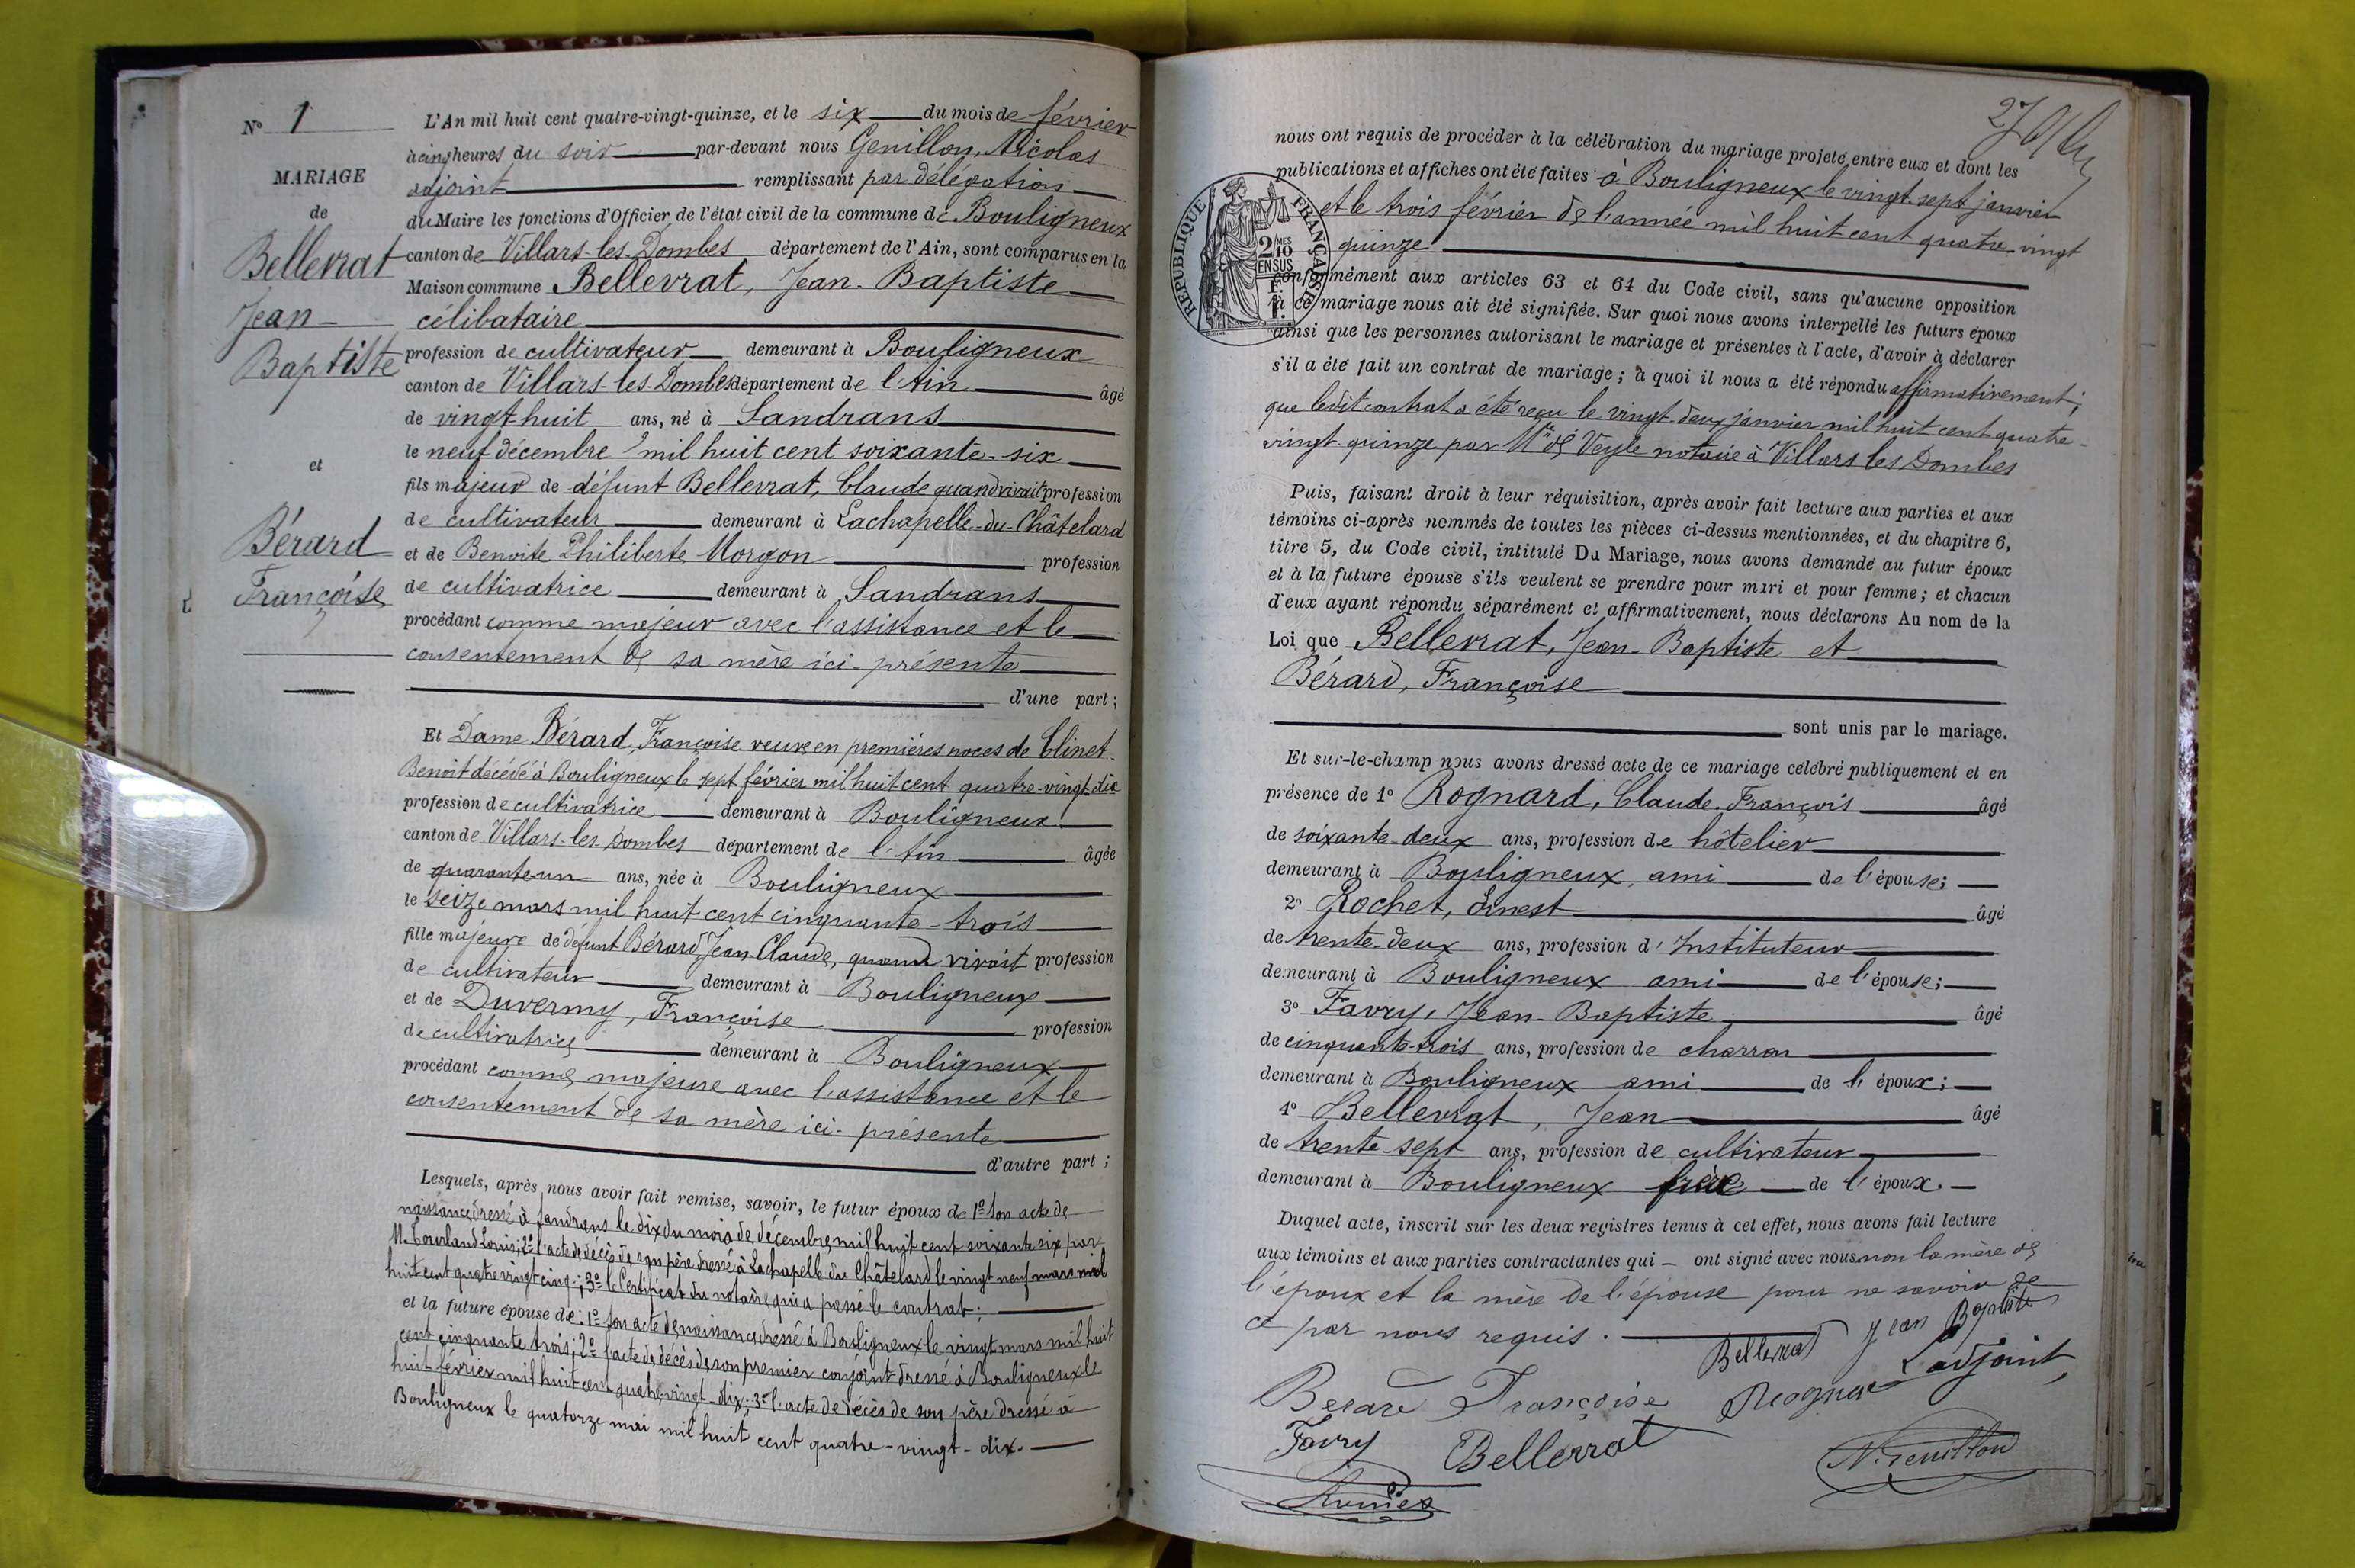 N° 1
MARIAGE
de
Bellevrat
Jean
Baptiste
et
Bérard
Françoise
L'An mil huit cent quatre-vingt-quinze, et le six du mois de février
à cinq heures du soir par-devant nous Genillon, Nicolas
adjoint remplissant par délégation
du Maire les fonctions d'Officier de l'état civil de la commune de Bouligneux
canton de Villars-les-Dombes département de l'Ain, sont comparus en la
Maison commune Bellevrat, Jean-Baptiste
célibataire
profession de cultivateur demeurant à Bouligneux
canton de Villars-les-Dombes département de l'Ain âgé
de vingt-huit ans, né à Sandrans
le neuf décembre mil huit cent soixante-six
fils majeur de défunt Bellevrat, Claude quand vivait profession
de cultivateur demeurant à Lachapelle-du-Châtelard
et de Benoite Philiberte Morgon profession
de cultivatrice demeurant à Sandrans
procédant comme majeur avec l'assistance et le
consentement de sa mère ici-présente
d'une part ;
Et Dame Bérard, Françoise veuve en premières noces de Clinet
Benoît décédé à Bouligneux le sept février mil huit cent quatre-vingt-dix
profession de cultivatrice demeurant à Bouligneux
canton de Villars-les-Dombes département de l'Ain âgée
de quarante-un ans, née à Bouligneux
le seize mars mil huit cent cinquante-trois
fille majeure de défunt Bérard, Jean Claude, quand vivait profession
de cultivateur demeurant à Bouligneux
et de Duverny, Françoise profession
de cultivatrice demeurant à Bouligneux
procédant comme majeure avec l'assistance et le
consentement de sa mère ici-présente
d'autre part ;
Lesquels, après nous avoir fait remise, savoir, le futur époux de 1° son acte de
naissance dressé à Sandrans le dix du mois de décembre mil huit cent soixante six par
M. Louis; 2° l'acte de décès de son père dressé à Lachapelle du Châtelard le vingt neuf mars mil
huit cent quatre vingt cinq; 3° le Certificat du notaire qui a passé le contrat;
et la future épouse de: 1° son acte de naissance dressé à Bouligneux le vingt mars mil huit
cent cinquante trois; 2° l'acte de décès de son premier conjoint dressé à Bouligneux le
huit février mil huit cent quatre-vingt-dix; 3° l'acte de décès de son père dressé à
Bouligneux le quatorze mai mil huit cent quatre-vingt-dix.
27
RÉPUBLIQUE FRANÇAISE
2 MES
10
EN SUS
nous ont requis de procéder à la célébration du mariage projeté entre eux et dont les
publications et affiches ont été faites à Bouligneux le vingt-sept janvier
et le trois février de l'année mil huit cent quatre-vingt
quinze
conformément aux articles 63 et 64 du Code civil, sans qu'aucune opposition
à ce mariage nous ait été signifiée. Sur quoi nous avons interpellé les futurs époux
ainsi que les personnes autorisant le mariage et présentes à l'acte, d'avoir à déclarer
s'il a été fait un contrat de mariage ; à quoi il nous a été répondu affirmativement;
que ledit contrat a été reçu le vingt-deux janvier mil huit cent quatre-
vingt-quinze par Me de Veyle notaire à Villars les Dombes
Puis, faisant droit à leur réquisition, après avoir fait lecture aux parties et aux
témoins ci-après nommés de toutes les pièces ci-dessus mentionnées, et du chapitre 6,
titre 5, du Code civil, intitulé Du Mariage, nous avons demandé au futur époux
et à la future épouse s'ils veulent se prendre pour mari et pour femme ; et chacun
d'eux ayant répondu séparément et affirmativement, nous déclarons Au nom de la
Loi que Bellevrat, Jean-Baptiste et
Bérard, Françoise
sont unis par le mariage.
Et sur-le-champ nous avons dressé acte de ce mariage célébré publiquement et en
présence de 1° Rognard, Claude-François âgé
de soixante-deux ans, profession de hôtelier
demeurant à Bouligneux, ami de l'épouse;
2° Rochet, Ernest âgé
de trente-deux ans, profession d'Instituteur
demeurant à Bouligneux ami de l'épouse;
3° Favry, Jean-Baptiste âgé
de cinquante-trois ans, profession de charron
demeurant à Bouligneux ami de l'époux;
4° Bellevrat, Jean âgé
de trente-sept ans, profession de cultivateur
demeurant à Bouligneux frère de l'époux.
Duquel acte, inscrit sur les deux registres tenus à cet effet, nous avons fait lecture
aux témoins et aux parties contractantes qui ont signé avec nous non la mère de
l'époux et la mère de l'épouse pour ne savoir de
ce par nous requis.
Bellevrat Jean Baptiste
Berard Françoise Rognard L'adjoint,
Favry Bellevrat N. Genillon